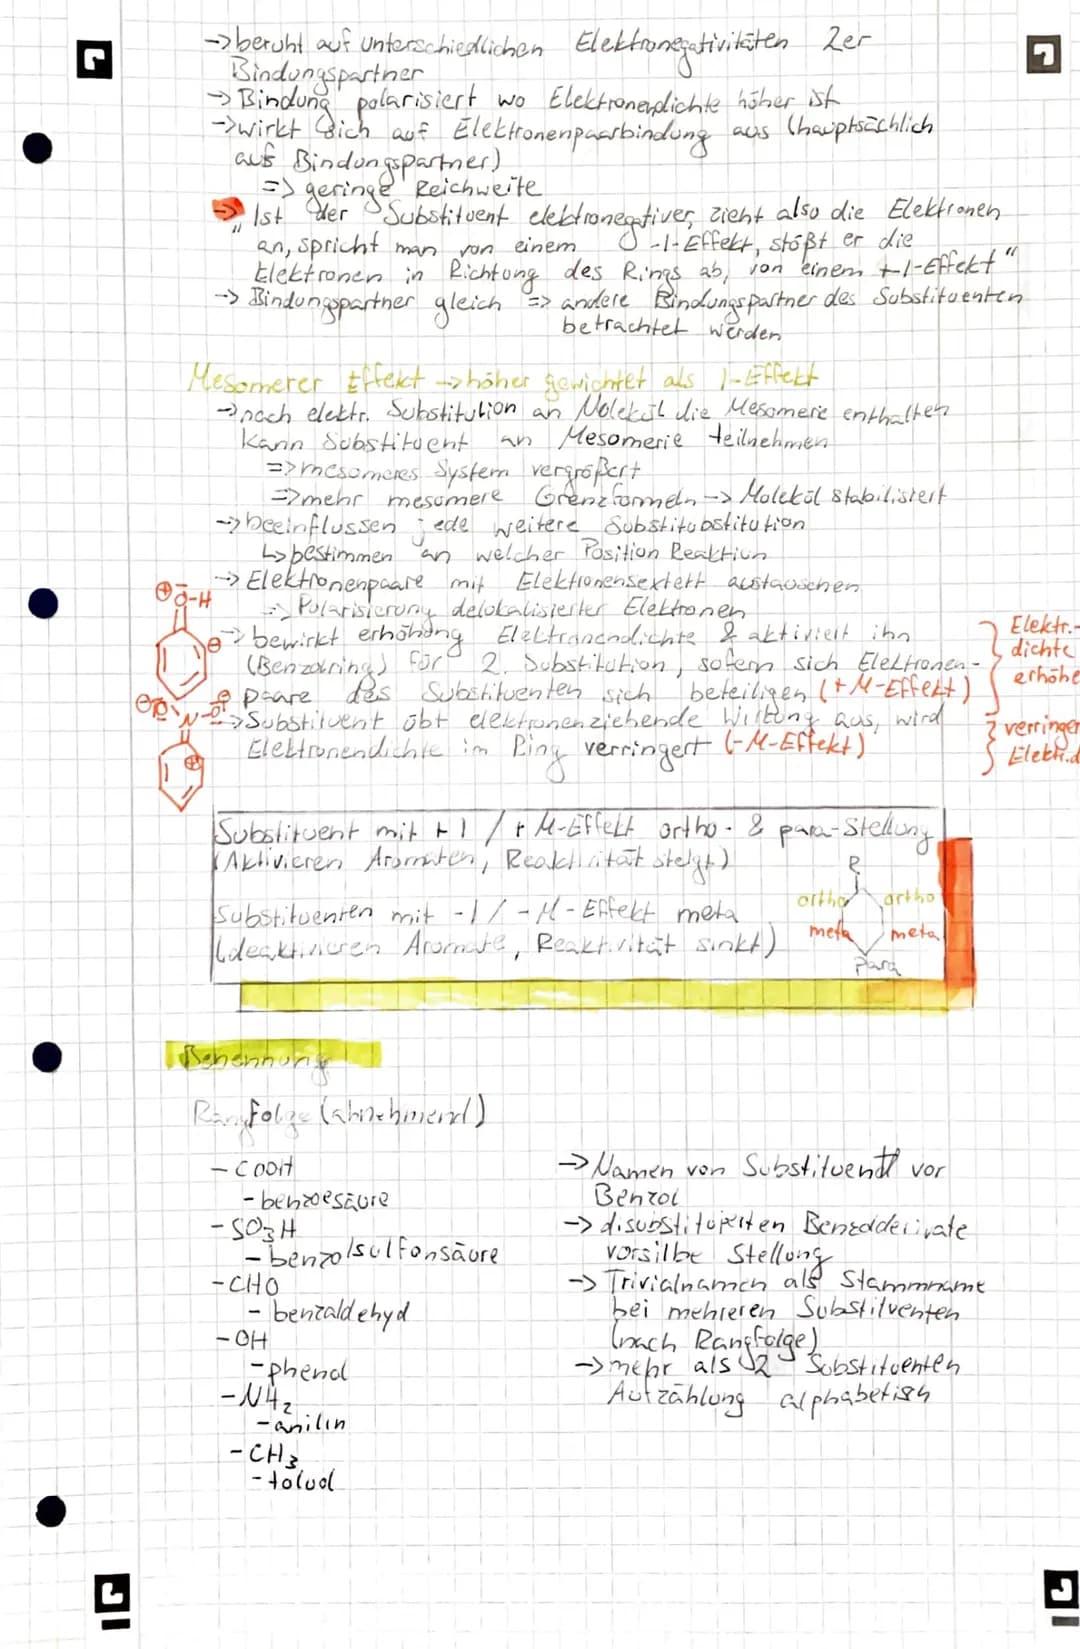 → beruht auf unterschiedlichen Elektronegativitäten 2er
Bindungspartner
→ Bindung polarisiert wo Elektronendichte höher ist
→ wirkt sich auf Elektronenpaarbindung aus (hauptsächlich
auf Bindungspartner)
=> geringe Reichweite
→ „Ist der Substituent elektronegativer, zieht also die Elektronen
an, spricht man von einem -I-Effekt, stößt er die
Elektronen in Richtung des Rings ab, von einem +I-Effekt“
→ Bindungspartner gleich => andere Bindungspartner des Substituenten
betrachtet werden
Mesomerer Effekt → höher gewichtet als I-Effekt
→ nach elektr. Substitution an Molekül die Mesomerie enthalten
kann Substituent an Mesomerie teilnehmen
=> mesomeres System vergrößert
=> mehr mesomere Grenzformeln → Molekül stabilisiert
→ beeinflussen jede weitere Substitubstitution
↳ bestimmen an welcher Position Reaktion
→ Elektronenpaare mit Elektronensextett austauschen
=> Polarisierung delokalisierter Elektronen
→ bewirkt erhöhung Elektronendichte & aktiviert ihn
(Benzolring) für 2. Substitution, sofern sich Elektronen-
paare des Substituenten sich beteiligen (+M-Effekt)
→ Substituent übt elektronenziehende Wirkung aus, wird
Elektronendichte im Ring verringert (-M-Effekt)
⊕ O-H
⊖
⊖ O N O ⊖
⊕
Elektr.-
dichte
erhöhe
verringer
Elektr.d
Substituent mit +I / +M-Effekt ortho- & para-Stellung
(Aktivieren Aromaten, Reaktivität steigt)
Substituenten mit -I / -M-Effekt meta
(deaktivieren Aromate, Reaktivität sinkt)
R
ortho ortho
meta meta
para
Benennung
Rangfolge (abnehmend)
- COOH
- benzoesäure
- SO3H
- benzolsulfonsäure
- CHO
- benzaldehyd
- OH
- phenol
- NH2
- anilin
- CH3
- toluol
→ Namen von Substituent vor
Benzol
→ disubstituierten Benzolderivate
vorsilbe Stellung
→ Trivialnamen als Stammname
bei mehreren Substituenten
(nach Rangfolge)
→ mehr als 2 Substituenten
Aufzählung alphabetisch